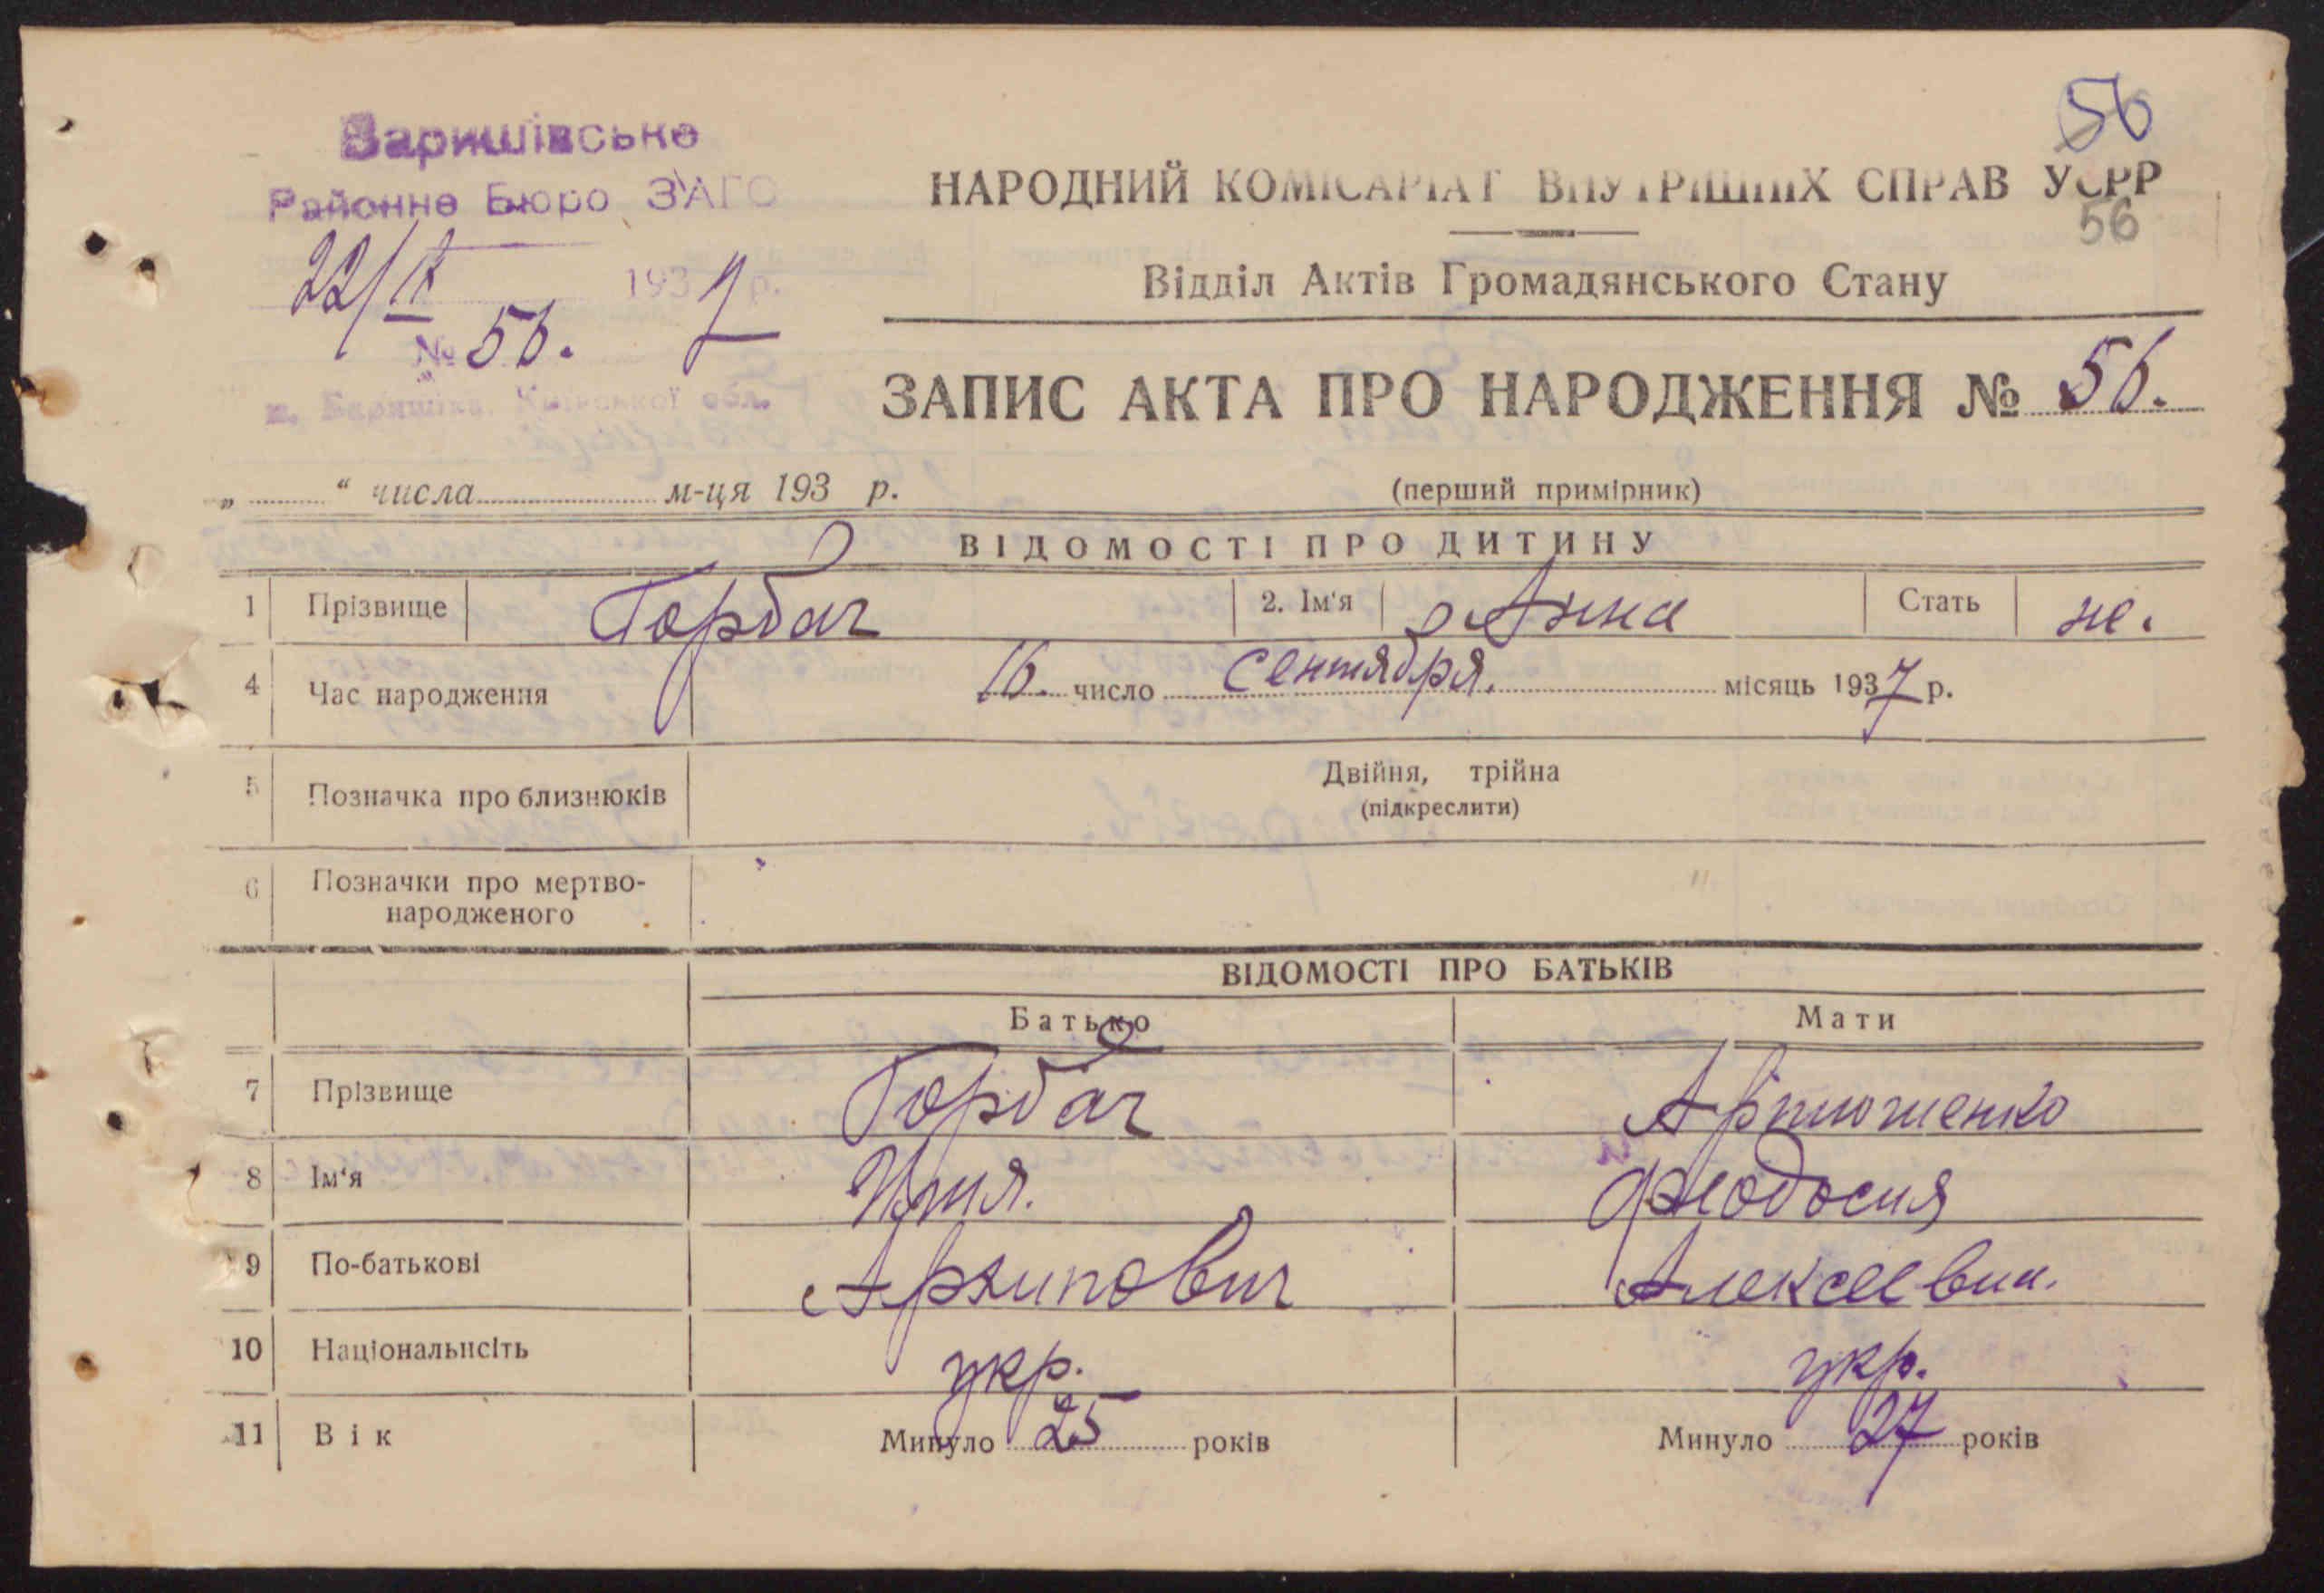 Баришівське
Районне Бюро ЗАГС
22/IX 1937 р.
№ 56.
м. Баришівка, Київської обл.
56
56
НАРОДНИЙ КОМІСАРІАТ ВНУТРІШНІХ СПРАВ УСРР
Відділ Актів Громадянського Стану
ЗАПИС АКТА ПРО НАРОДЖЕННЯ № 56.
„ “ числа м-ця 193 р.
(перший примірник)
ВІДОМОСТІ ПРО ДИТИНУ
1 Прізвище Горбач 2. Ім'я Анна Стать ж.
4 Час народження 16. число сентября. місяць 1937 р.
5 Позначка про близнюків Двійня, трійна
(підкреслити)
6 Позначки про мертво-
народженого
ВІДОМОСТІ ПРО БАТЬКІВ
Батько Мати
7 Прізвище Горбач Артюшенко
8 Ім'я Феодосия
9 По-батькові Архипович Алексеевна.
10 Національнсіть укр. укр.
11 Вік Минуло 25 років Минуло 27 років